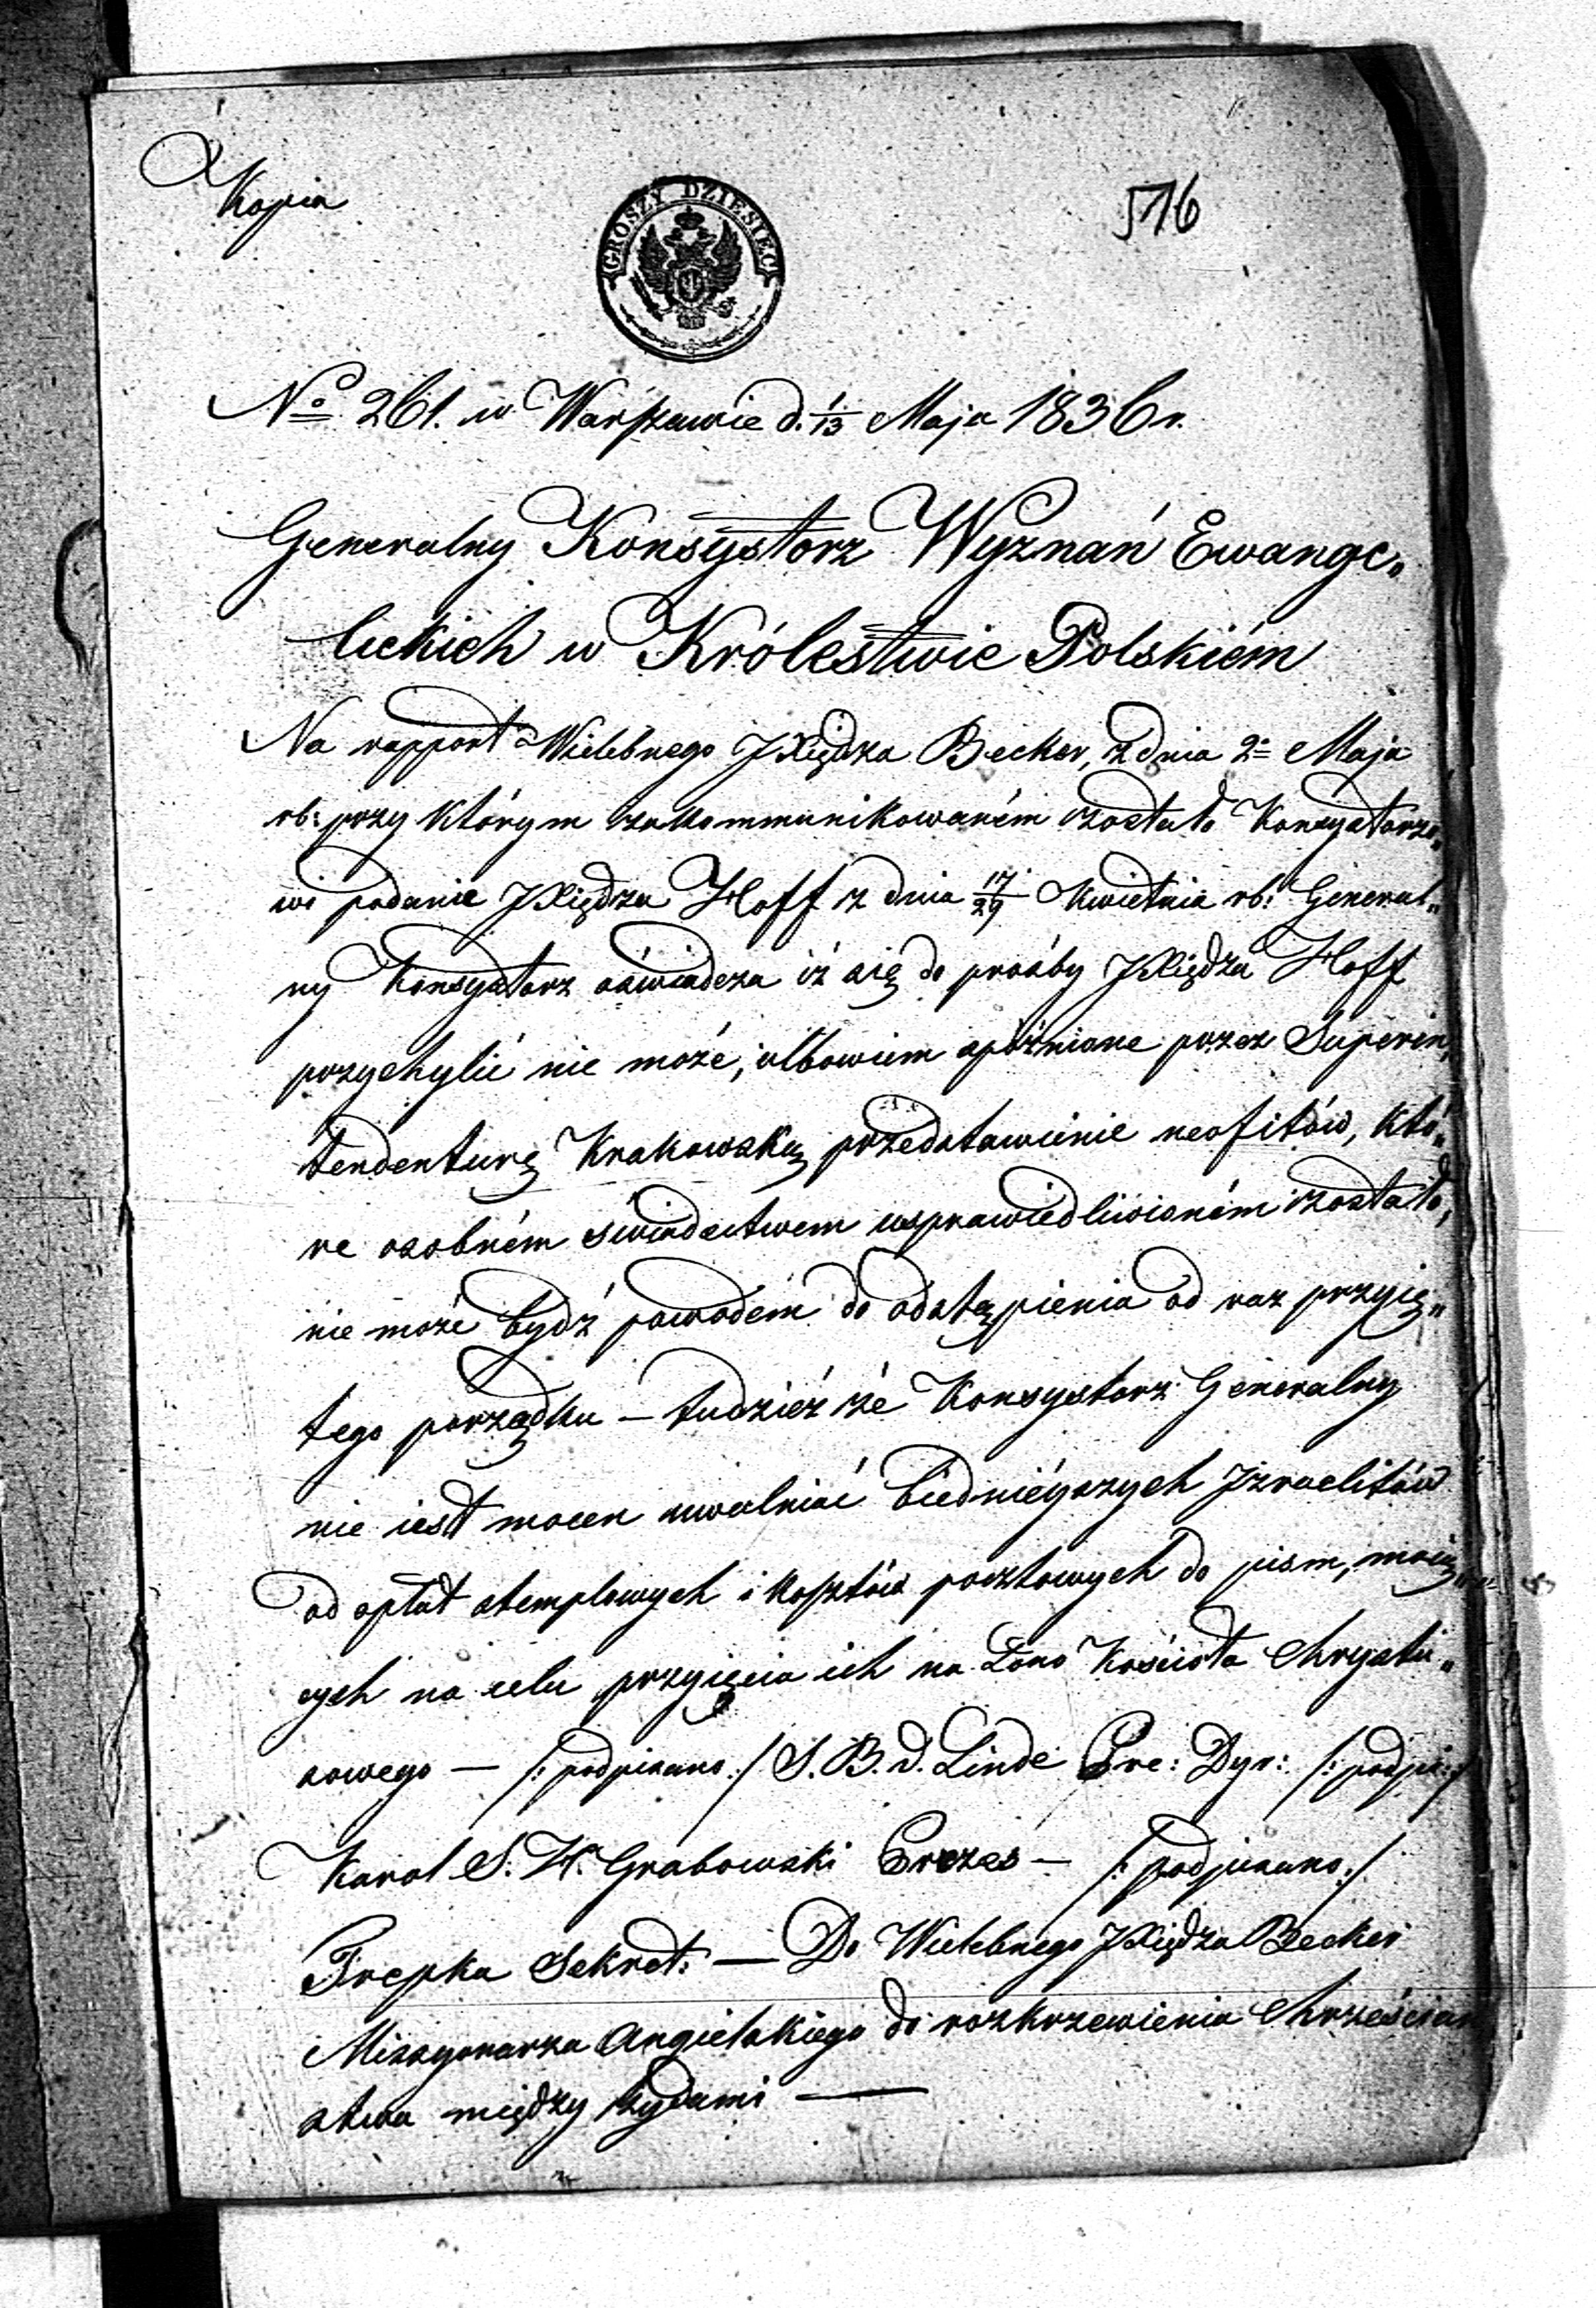 Kopia
GROSZY DZIESIĘĆ
516
No 261. w Warszawie d. 1/13 Maja 1836 r.
Generalny Konsystorz Wyznań Ewange„
lickich w Królestwie Polskiém
Na rapport Wielebnego JXiędza Becker, z dnia 2o Maja
rb: przy którym zakommunikowaném zostało Konsystorzo„
wi podanie JXiędza Hoff z dnia 17/29 Kwietnia rb: General„
ny Konsystorz oświadcza iż się do prośby JXiędza Hoff
przychylić nie może, albowiem spóźnione przez Superin„
tendenturę Krakowską przedstawienie neofitów, któ„
re osobném świadectwem usprawiedliwioném zostało,
nie może bydź powodem do odstąpienia od raz przyię„
tego porządku — tudzież że Konsystorz Generalny
nie iest mocen uwalniać biedniéyszych Izraelitów
od opłat stemplowych i kosztów pocztowych do pism, maią„
cych na celu przyięcia ich na Łono Kościoła Chrystu„
sowego — /: podpisano :/ S. B. d. Linde Pre: Dyr: /: podpis :/
Karol S. H. Grabowski Prezes — /: podpisano :/
Trepka Sekret: — Do Wielebnego JXiędza Becker
Missyonarza Angielskiego do rozkrzewienia Chrześcian
stwa między Żydami —